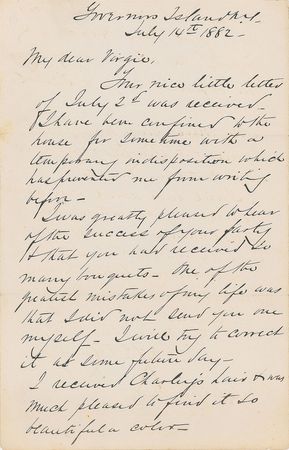 Governors Island N.Y.
July 14th 1882 -
My dear Virgie,
Your nice little letter
of July 2d was received -
I have been confined to the
house for sometime with a
temporary indisposition which
has prevented me from writing
before -
I was greatly pleased to hear
of the success of your party
& that you had received so
many bouquets - One of the
greatest mistakes of my life was
that I did not send you one
myself - I will try to correct
it at some future day -
I received Charley's hair & was
much pleased to find it so
beautiful a color -